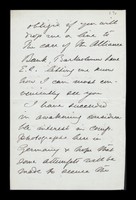 obliged if you will
drop me a line to
the care of the Alliance
Bank Bartholomew Lane
E.C. letting me know
how I can most con-
veniently see you.
I have succeeded
in awakening consider-
able interest in comp.
photographs here in
Germany & hope that
some attempts will be
made to secure the